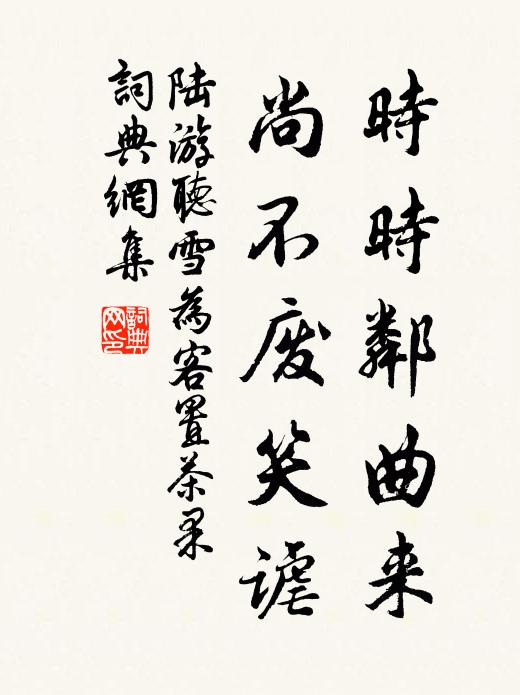 時時鄰曲来
尚不废笑謔
陆游聽雪為客置茶果
詞典網集
詞典网印